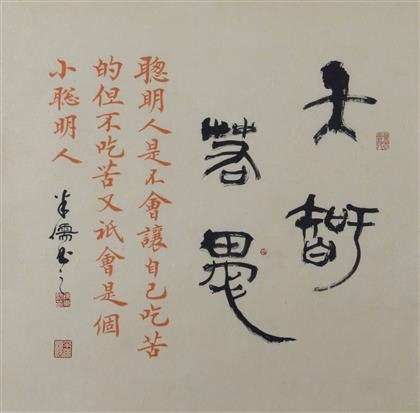 大智
若愚
聰明人是不會讓自己吃苦
的但不吃苦又祇會是個
小聪明人
半儒书之